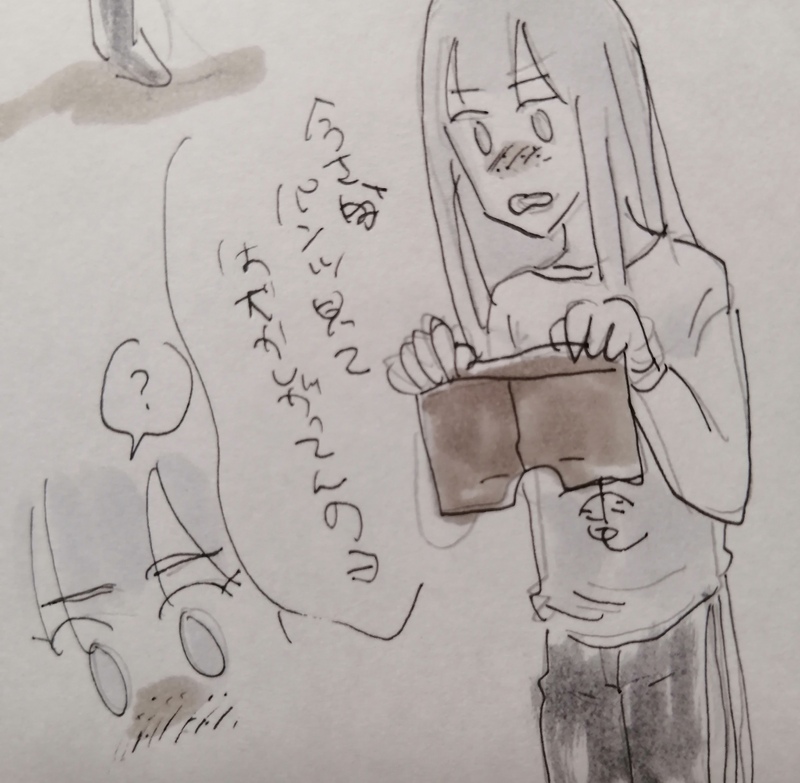 今さら
パンツ見て
はずかしがってんの
?